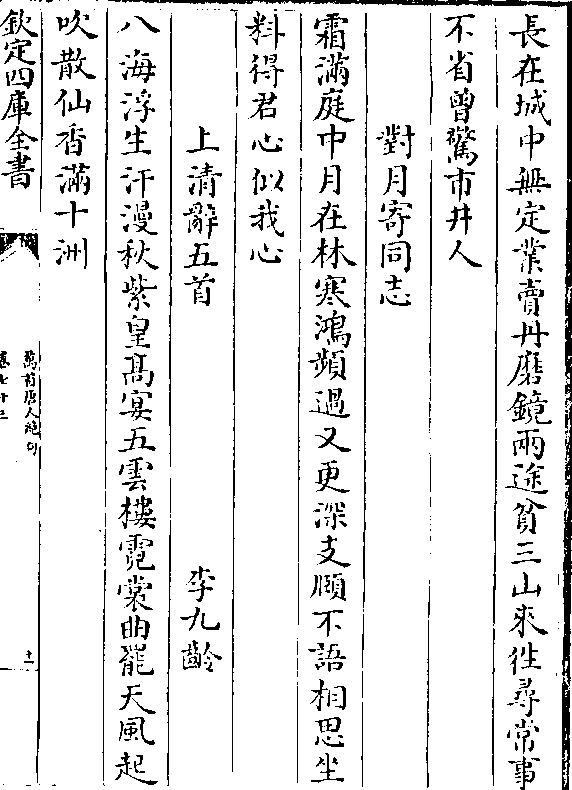 長在城中無定業賣丹磨鏡兩途貧三山來徃尋常事
不省曾驚市井人
對月寄同志
霜滿庭中月在林寒鴻頻過又更深支頤不語相思坐
料得君心似我心
上清辭五首 李九齡
八海浮生汗漫秋紫皇髙宴五雲樓霓裳曲罷天風起
吹散仙香滿十洲
欽定四庫全書
萬首唐人絶句
卷七十三
十一